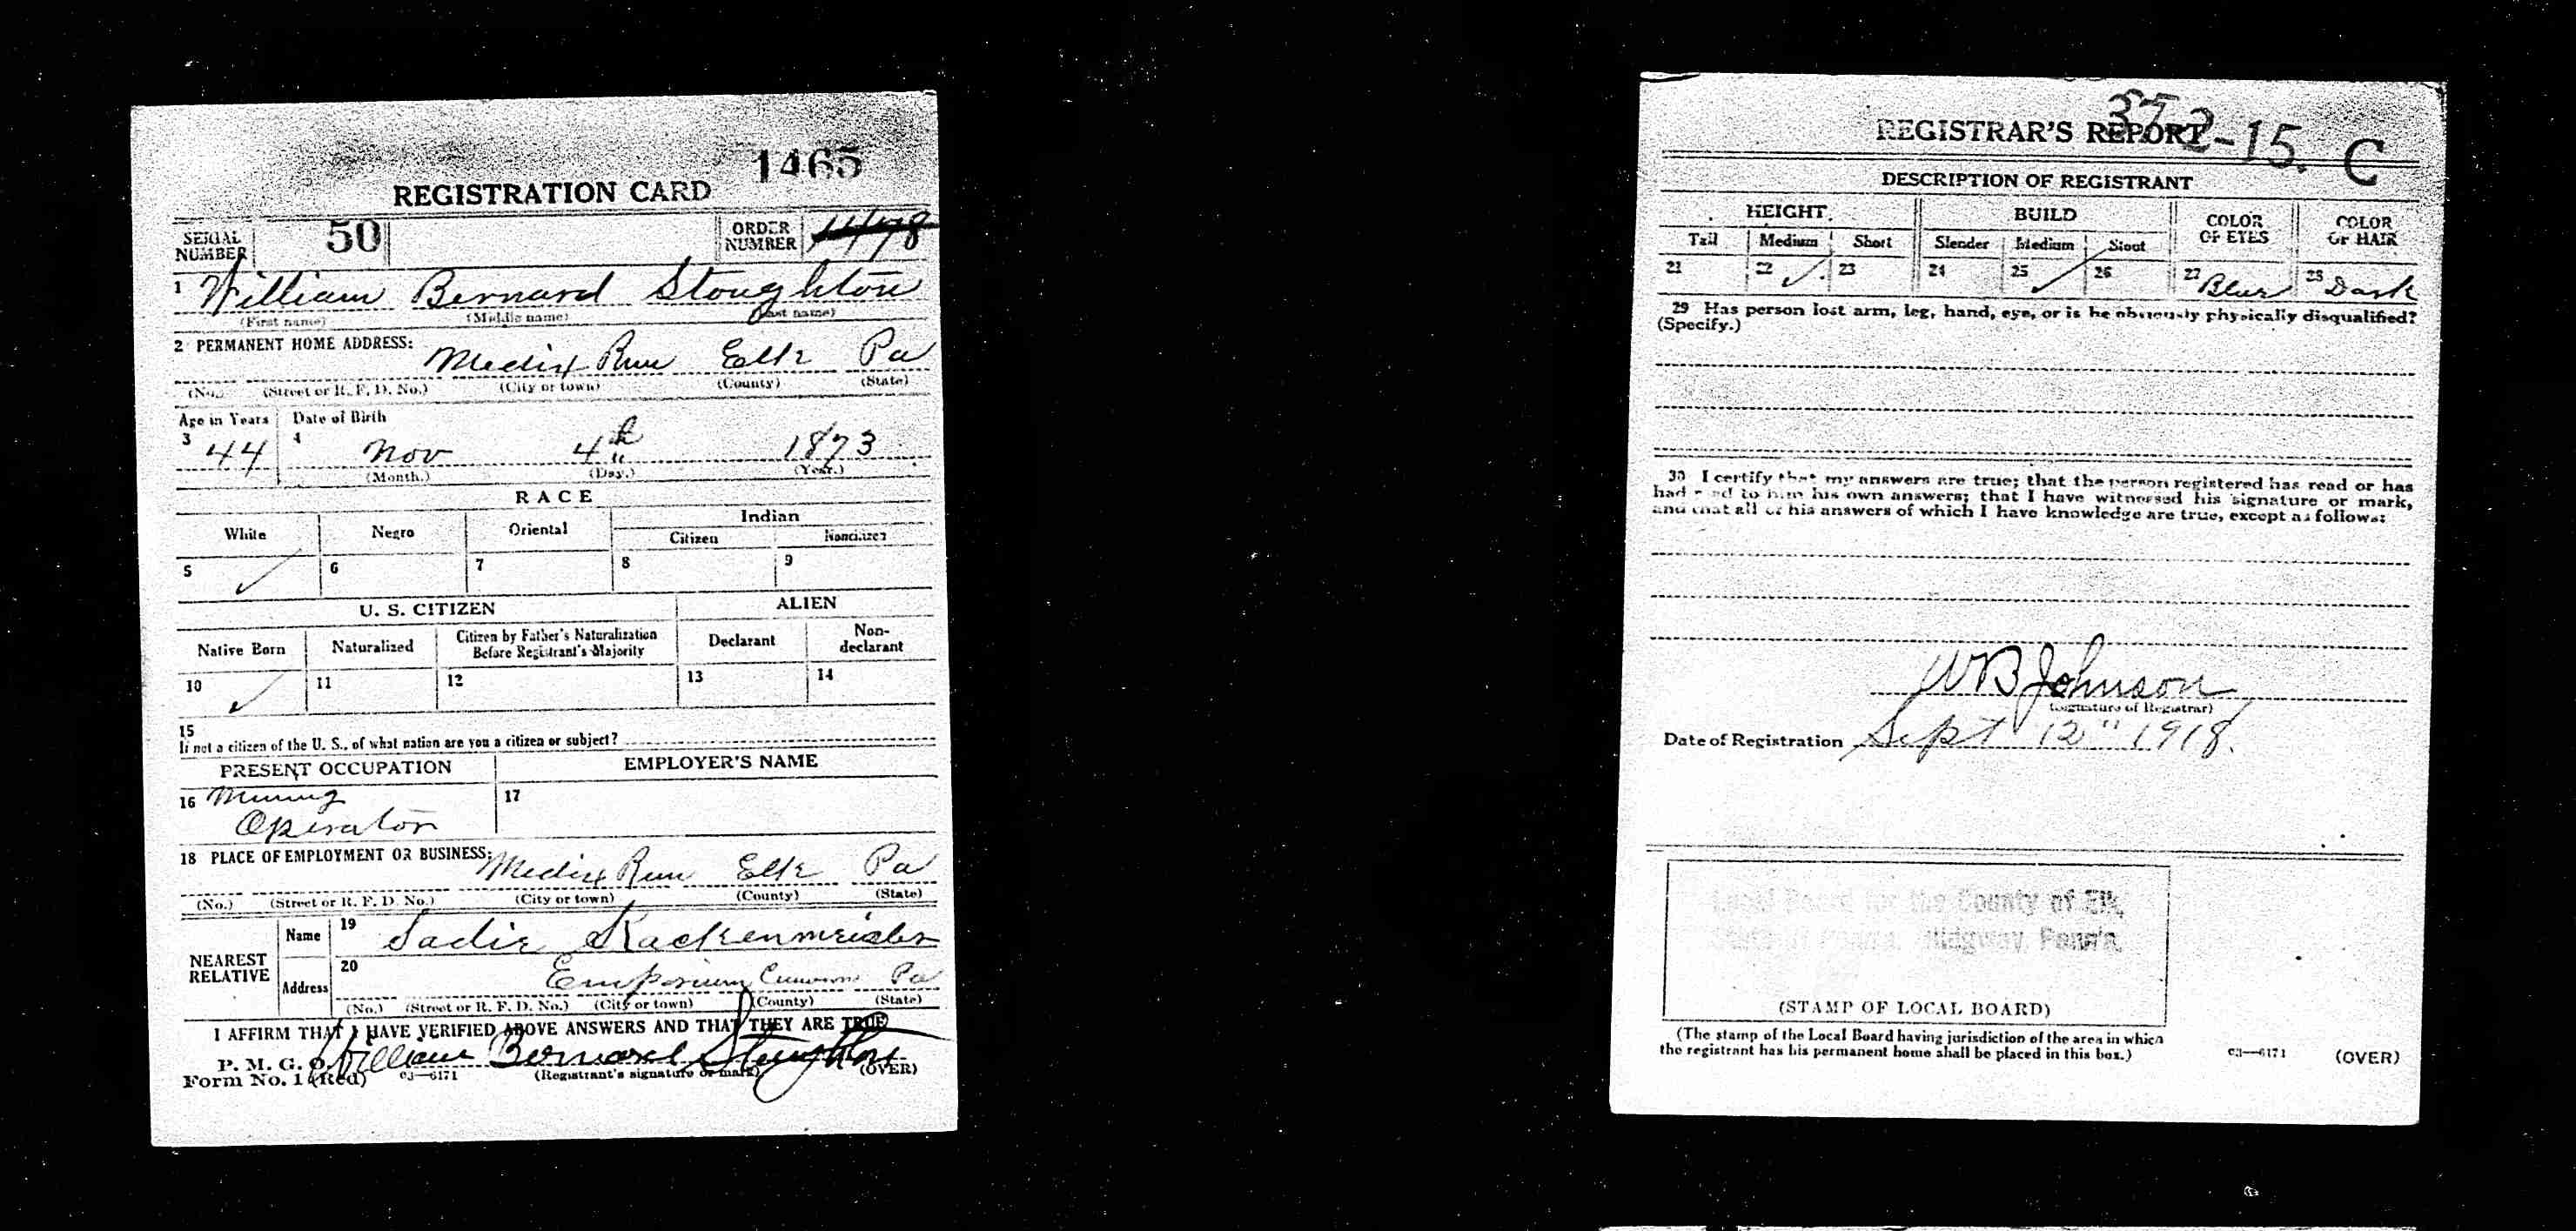 1465
REGISTRATION CARD
SERIAL NUMBER 50 ORDER NUMBER 1478
1 William Bernard Stoughton
(First name) (Middle name) (Last name)
2 PERMANENT HOME ADDRESS:
Medix Run Elk Pa
(No.) (Street or R. F. D. No.) (City or town) (County) (State)
Age in Years Date of Birth
3 44 4 Nov 4th 1873
(Month.) (Day.) (Year.)
RACE
White Negro Oriental Indian
Citizen Noncitizen
5 ✓ 6 7 8 9
U. S. CITIZEN ALIEN
Native Born Naturalized Citizen by Father's Naturalization Before Registrant's Majority Declarant Non-declarant
10 ✓ 11 12 13 14
15
If not a citizen of the U. S., of what nation are you a citizen or subject?
PRESENT OCCUPATION EMPLOYER'S NAME
16 Mining 17
Operator
18 PLACE OF EMPLOYMENT OR BUSINESS:
Medix Run Elk Pa
(No.) (Street or R. F. D. No.) (City or town) (County) (State)
NEAREST RELATIVE
Name 19 Sadie
Address 20 Emporium Cameron Pa
(No.) (Street or R. F. D. No.) (City or town) (County) (State)
I AFFIRM THAT I HAVE VERIFIED ABOVE ANSWERS AND THAT THEY ARE TRUE
P. M. G. O. William Bernard Stoughton
Form No. 1 (Red) 03—6171 (Registrant's signature or mark) (OVER)
37-2-15. C
REGISTRAR'S REPORT
DESCRIPTION OF REGISTRANT
HEIGHT BUILD COLOR OF EYES COLOR OF HAIR
Tall Medium Short Slender Medium Stout
21 22 ✓ 23 24 25 ✓ 26 27 Blue 28 Dark
29 Has person lost arm, leg, hand, eye, or is he obviously physically disqualified?
(Specify.)
30 I certify that my answers are true; that the person registered has read or has
had read to him his own answers; that I have witnessed his signature or mark,
and that all of his answers of which I have knowledge are true, except as follows:
W B Johnson
(Signature of Registrar)
Date of Registration Sept 12" 1918.
Local Board for the County of Elk,
State of Penn'a. Ridgway, Penn'a.
(STAMP OF LOCAL BOARD)
(The stamp of the Local Board having jurisdiction of the area in which
the registrant has his permanent home shall be placed in this box.)
03—6171 (OVER)